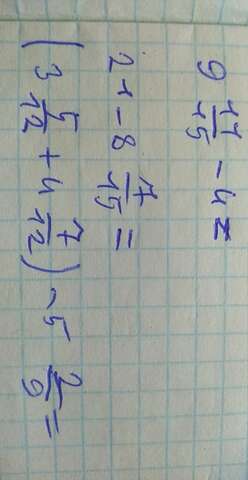 9 11/15 - 4 =
21 - 8 7/15 =
(3 5/12 + 4 7/12) - 5 2/9 =